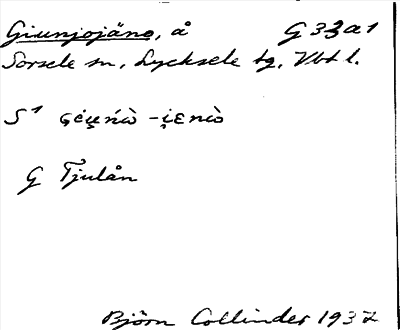 Giunjojäno, å G 33a1
Sorsele sn, Lycksele tg. Vbt l.
S¹
G Tjulån
Björn Collinder 1937